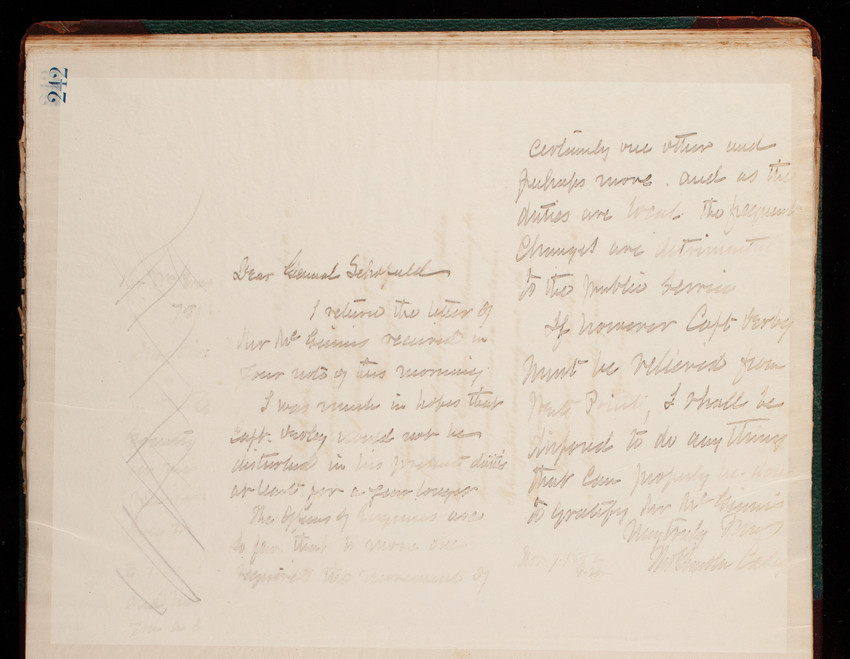 242
Dear General Schofield
I return the letter of
Mr McGinnis received in
your note of this morning
I was much in hopes that
Capt. Derby would not be
disturbed in his present duties
at least for a year longer
The Officers of Engineers are
so few that to move one
requires the movement of
certainly one other and
perhaps more. and as the
duties are local the frequent
changes are detrimental
to the public service
If however Capt Derby
must be relieved from
West Point, I shall be
disposed to do anything
that can properly be done
to gratify Mr McGinnis
Very truly Yours
Thos Lincoln Casey